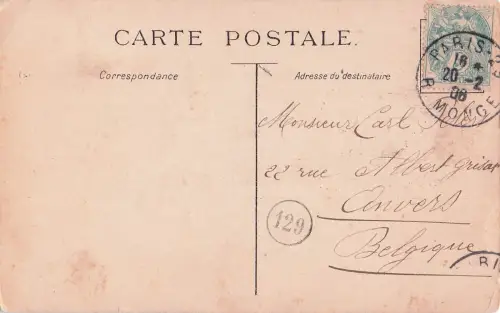 CARTE POSTALE.
Correspondance
Adresse du destinataire
PARIS
R. MONGE
20 - 2
06
Monsieur Carl
22 rue Albert grisar
Anvers
Belgique
129